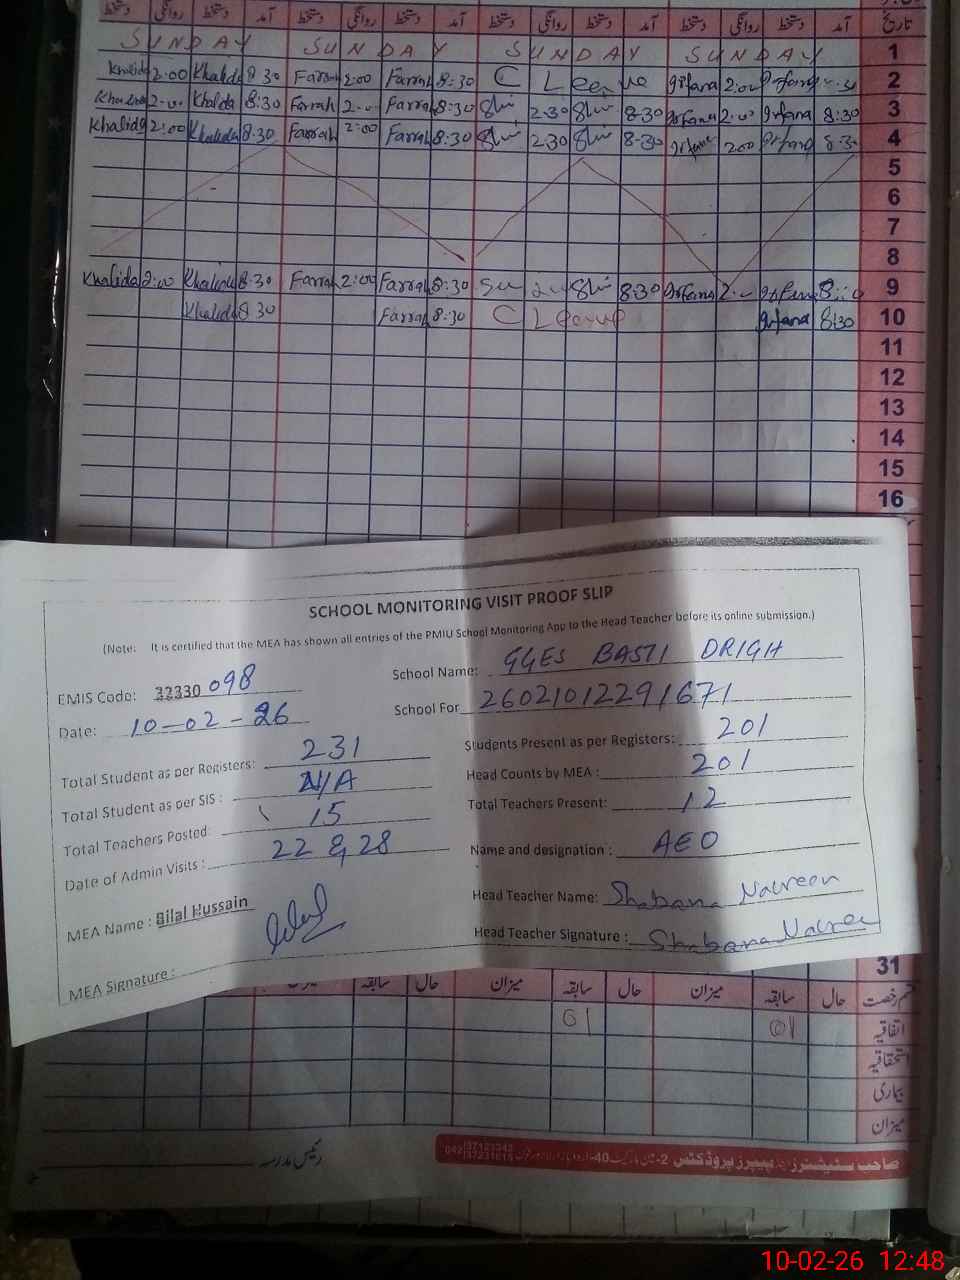 دستخط روانگی دستخط آمد دستخط روانگی دستخط آمد دستخط روانگی دستخط آمد دستخط روانگی دستخط آمد تاریخ
SUNDAY SUNDAY SUNDAY SUNDAY 1
Khalida 2:00 Khalida 8:30 Farrah 2:00 Farrah 8:30 C Leave Irfana 2:00 Irfana 2
Khalida 2:00 Khalida 8:30 Farrah 2:00 Farrah 8:30 2:30 8:30 Irfana 2:00 Irfana 8:30 3
Khalida 2:00 Khalida 8:30 Farrah 2:00 Farrah 8:30 2:30 8:30 Irfana 2:00 Irfana 8:30 4
5
6
7
8
Khalida 2:00 Khalida 8:30 Farrah 2:00 Farrah 8:30 8:30 Irfana Irfana 9
Khalida 8:30 Farrah 8:30 C Leave Irfana 8:30 10
11
12
13
14
15
16
SCHOOL MONITORING VISIT PROOF SLIP
(Note: It is certified that the MEA has shown all entries of the PMIU School Monitoring App to the Head Teacher before its online submission.)
EMIS Code: 32330 098 School Name: GGES BASTI DRIGH
Date: 10-02-26 School For 26021012291671
Total Student as per Registers: 231 Students Present as per Registers: 201
Total Student as per SIS : N/A Head Counts by MEA : 201
Total Teachers Posted: 15 Total Teachers Present: 12
Date of Admin Visits : 22 & 28 Name and designation : AEO
MEA Name : Bilal Hussain Head Teacher Name: Shabana Naureen
MEA Signature : Head Teacher Signature : Shabana Naureen
31
میزان سابقہ حال میزان سابقہ حال میزان سابقہ حال قسم رخصت
01 01 اتفاقیہ
استحقاقیہ
بیماری
میزان
رئیس مدرسہ
صاحب سٹیشنرز اینڈ پیپرز پروڈکٹس
10-02-26 12:48